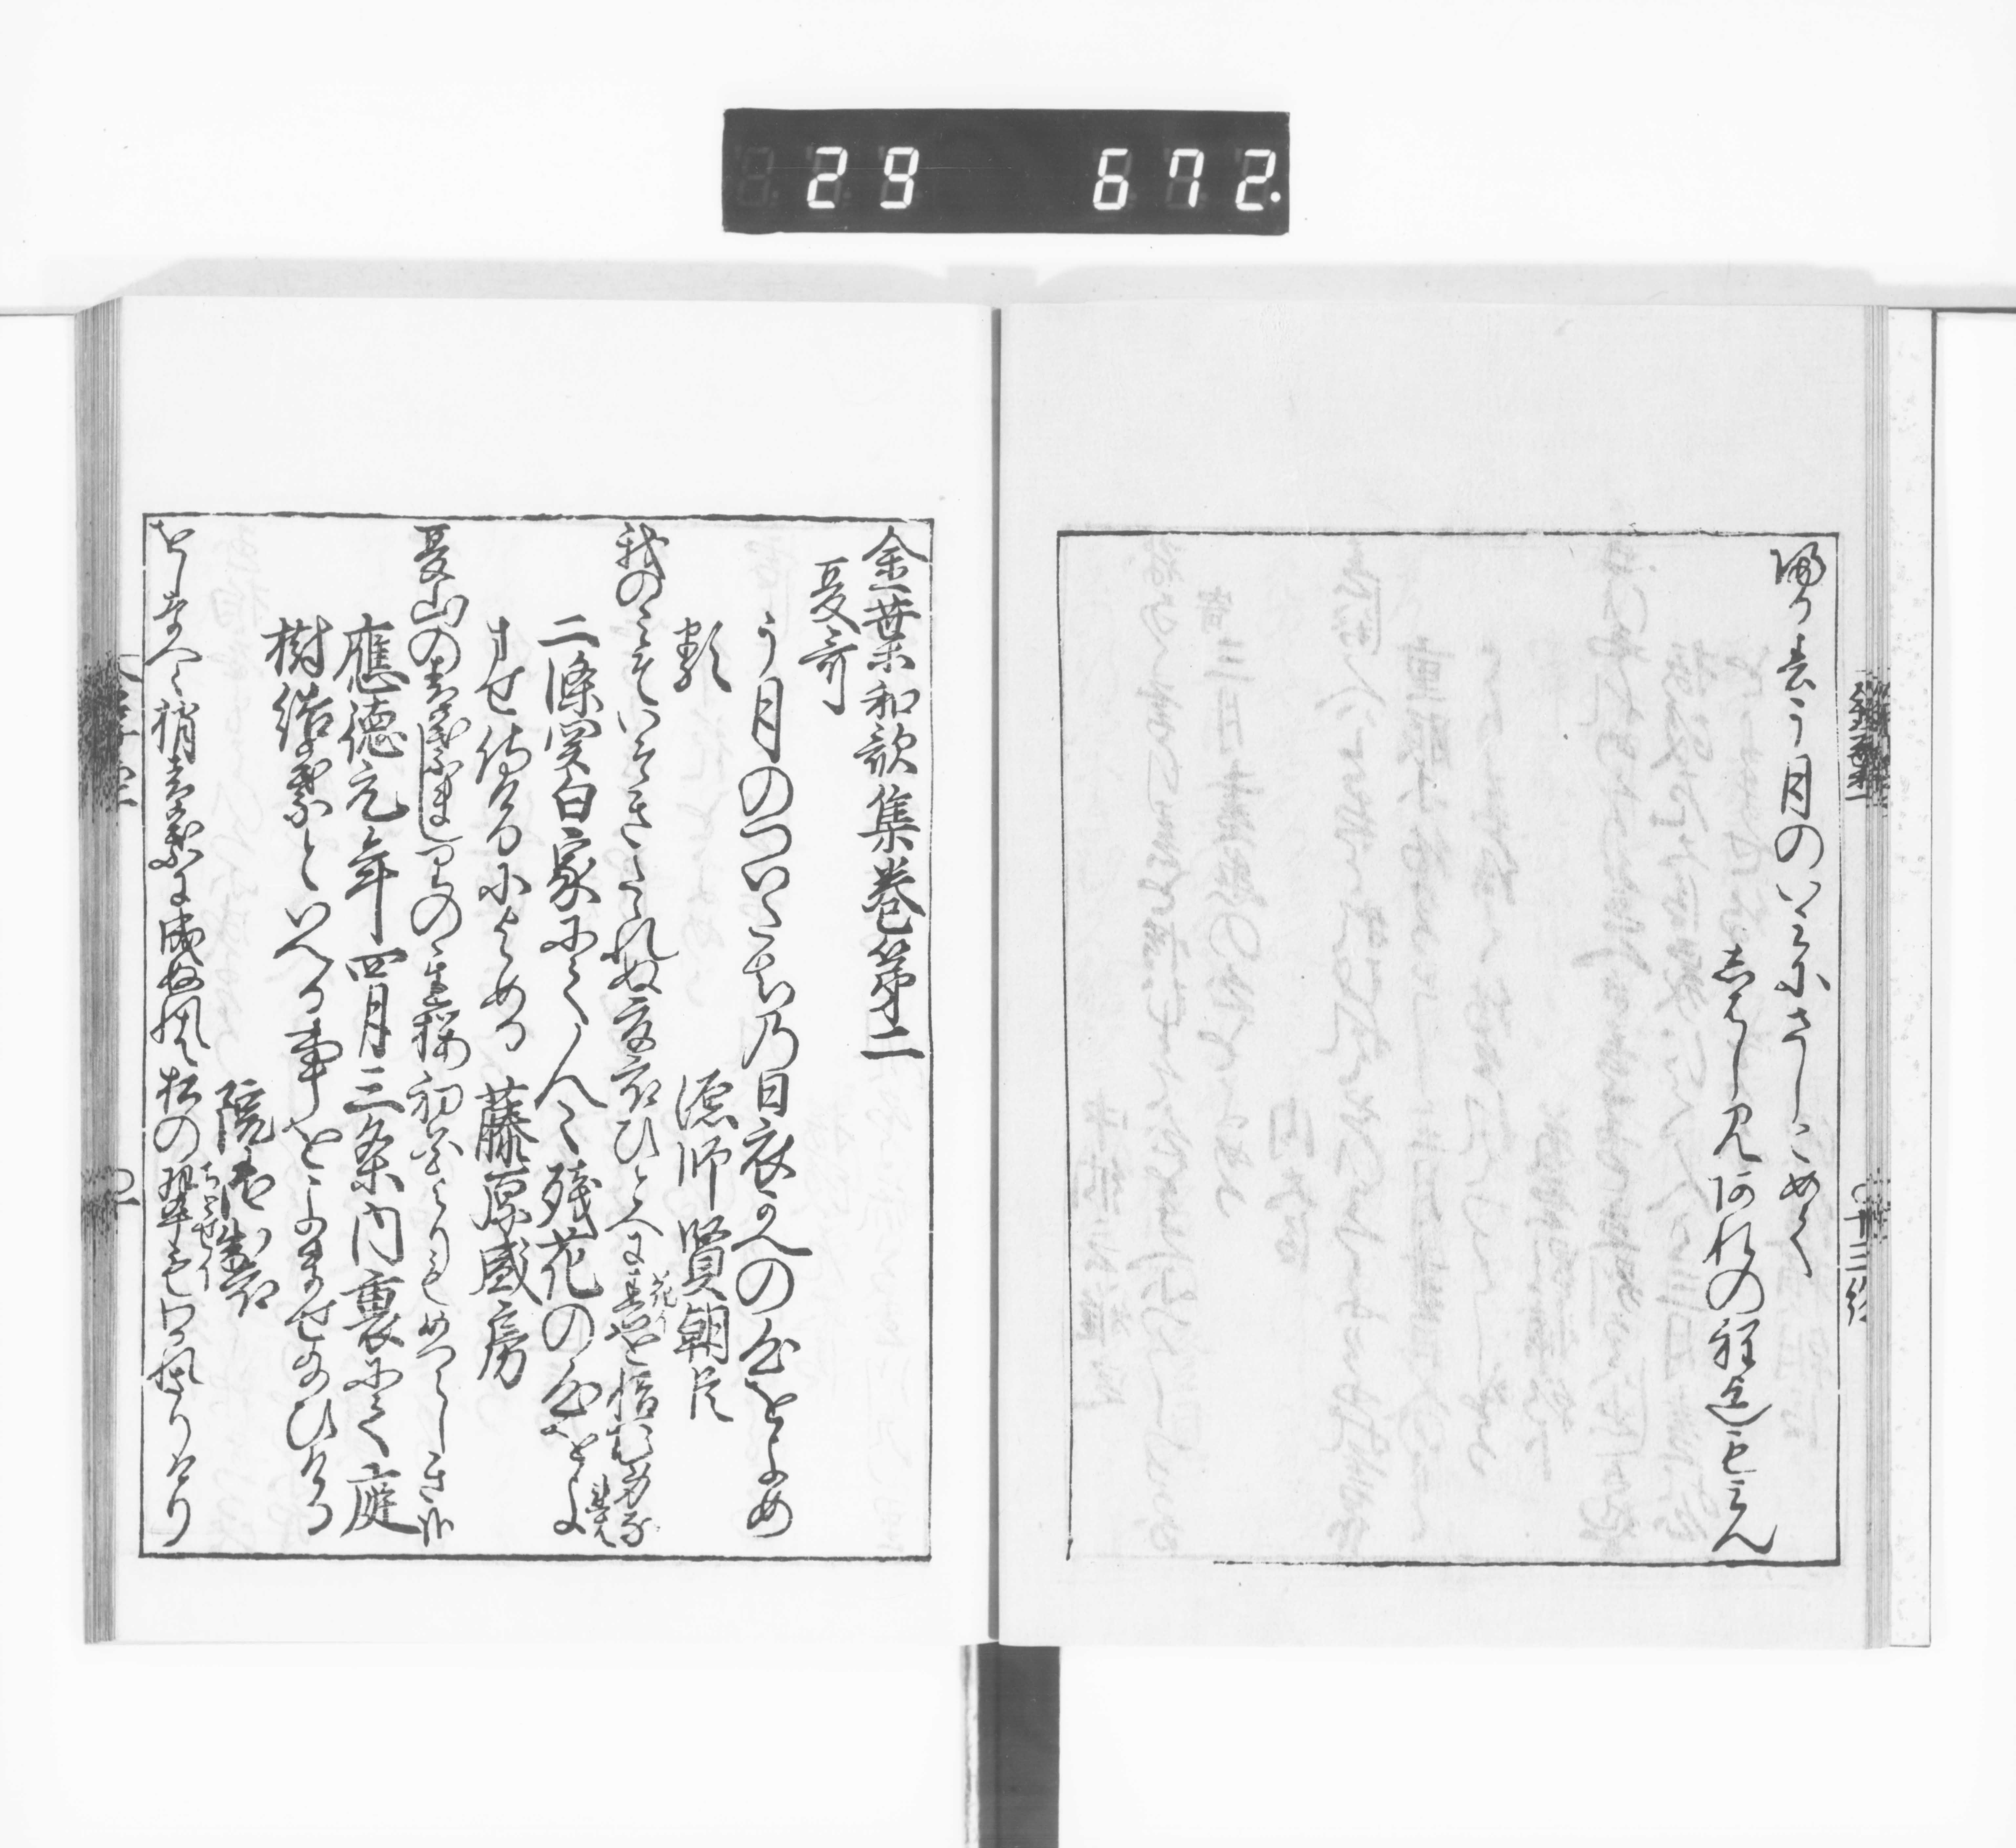 29 672.
帰る春う月のいみにさしこめて
しはしみあれの程迄もみん
金葉和歌集巻第二
夏哥
う月のついたちの日衣かへの心をよめ
る
源師賢朝臣
我のみそいそきたゝれぬ夏衣ひとへに春を惜む身なれは
二條関白家にて人々残花の心をよ
ませ侍けるによめる 藤原盛房
夏山の青葉ましりの遅桜初花よりもめつらしき哉
應徳元年四月三条内裏にて庭
樹結葉といへる事をよませ給ひける
院御製
をしなへて梢青葉に成ぬれは松の翠もわかれさりけり